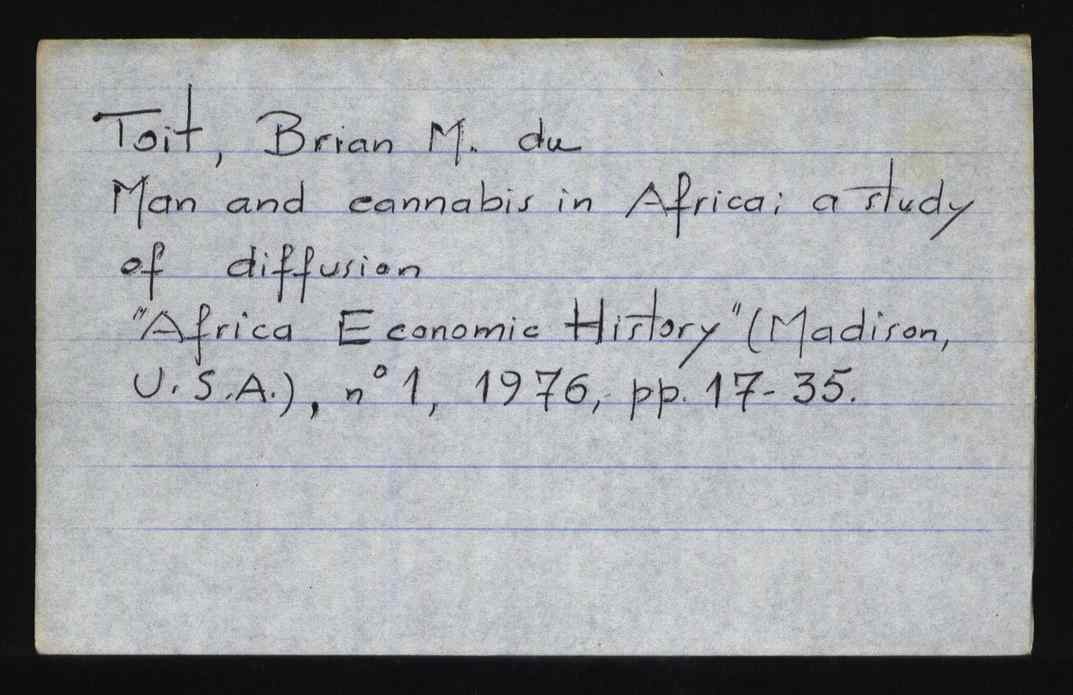 Toit, Brian M. du
Man and cannabis in Africa; a study
of diffusion
"Africa Economic History" (Madison,
U.S.A.), nº 1, 1976, pp. 17-35.